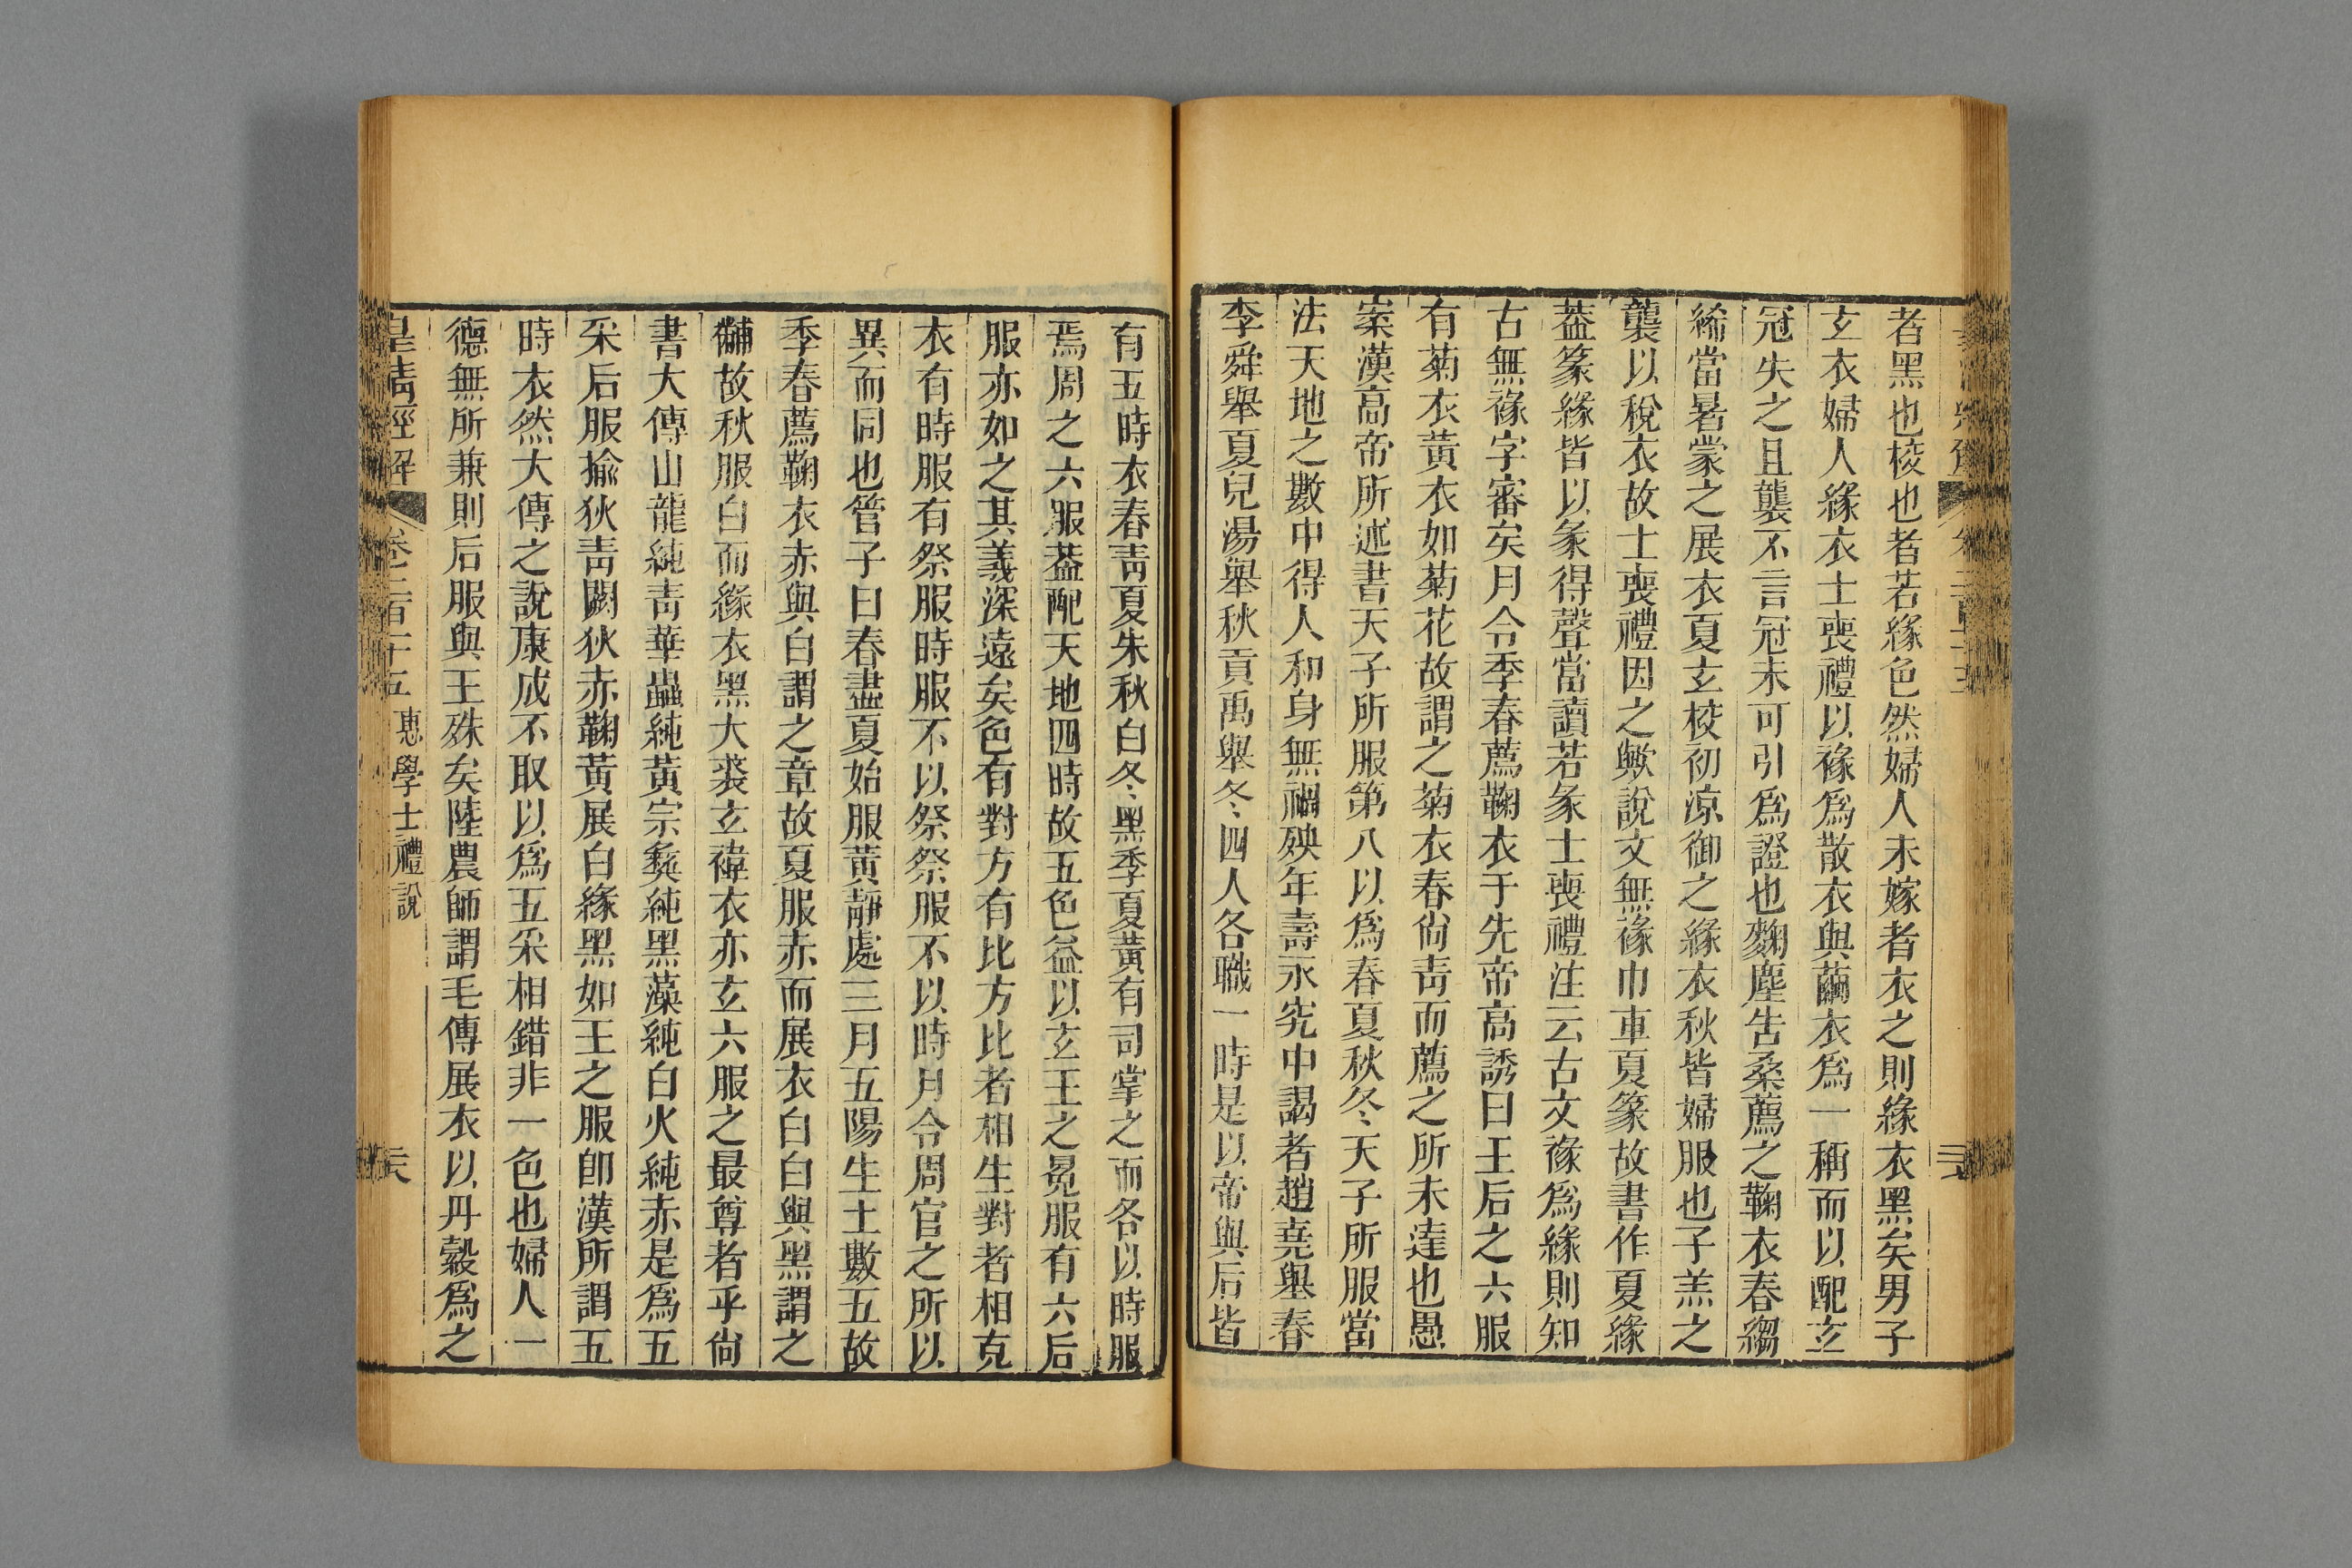 者黑也棱也者若緣色然婦人未嫁者衣之則緣衣黑矣男子
玄衣婦人緣衣士喪禮以褖爲散衣與繭衣爲一稱而以配玄
冠失之且襲不言冠未可引爲證也麴塵告桑薦之鞠衣春縐
絺當暑蒙之展衣夏玄校初涼御之緣衣秋皆婦服也子羔之
襲以稅衣故士喪禮因之歟說文無褖巾車夏篆故書作夏緣
葢篆緣皆以彖得聲當讀若彖士喪禮注云古文褖爲緣則知
古無褖字審矣月令季春薦鞠衣于先帝高誘曰王后之六服
有菊衣黃衣如菊花故謂之菊衣春尙靑而薦之所未達也愚
案漢高帝所述書天子所服第八以爲春夏秋冬天子所服當
法天地之數中得人和身無禍殃年壽永究中謁者趙堯舉春
李舜舉夏兒湯舉秋貢禹舉冬四人各職一時是以帝與后皆
有五時衣春靑夏朱秋白冬黑季夏黃有司掌之而各以時服
焉周之六服葢配天地四時故五色益以玄王之冕服有六后
服亦如之其義深遠矣色有對方有比方比者相生對者相克
衣有時服有祭服時服不以祭祭服不以時月令周官之所以
異而同也管子曰春盡夏始服黃靜處三月五陽生土數五故
季春薦鞠衣赤與白謂之章故夏服赤而展衣白白與黑謂之
黼故秋服白而緣衣黑大裘玄褘衣亦玄六服之最尊者乎尙
書大傳山龍純靑華蟲純黃宗彝純黑藻純白火純赤是爲五
采后服揄狄靑闕狄赤鞠黃展白緣黑如王之服卽漢所謂五
時衣然大傳之說康成不取以爲五采相錯非一色也婦人一
德無所兼則后服與王殊矣陸農師謂毛傳展衣以丹縠爲之
皇淸經解 卷二百十五 惠學士禮說